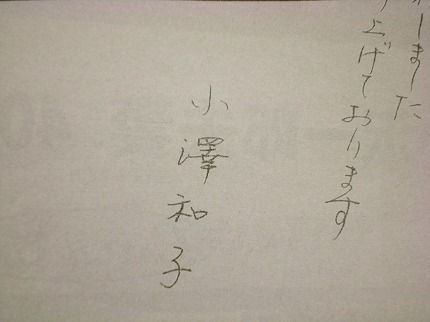 しました
上げております
小澤和子